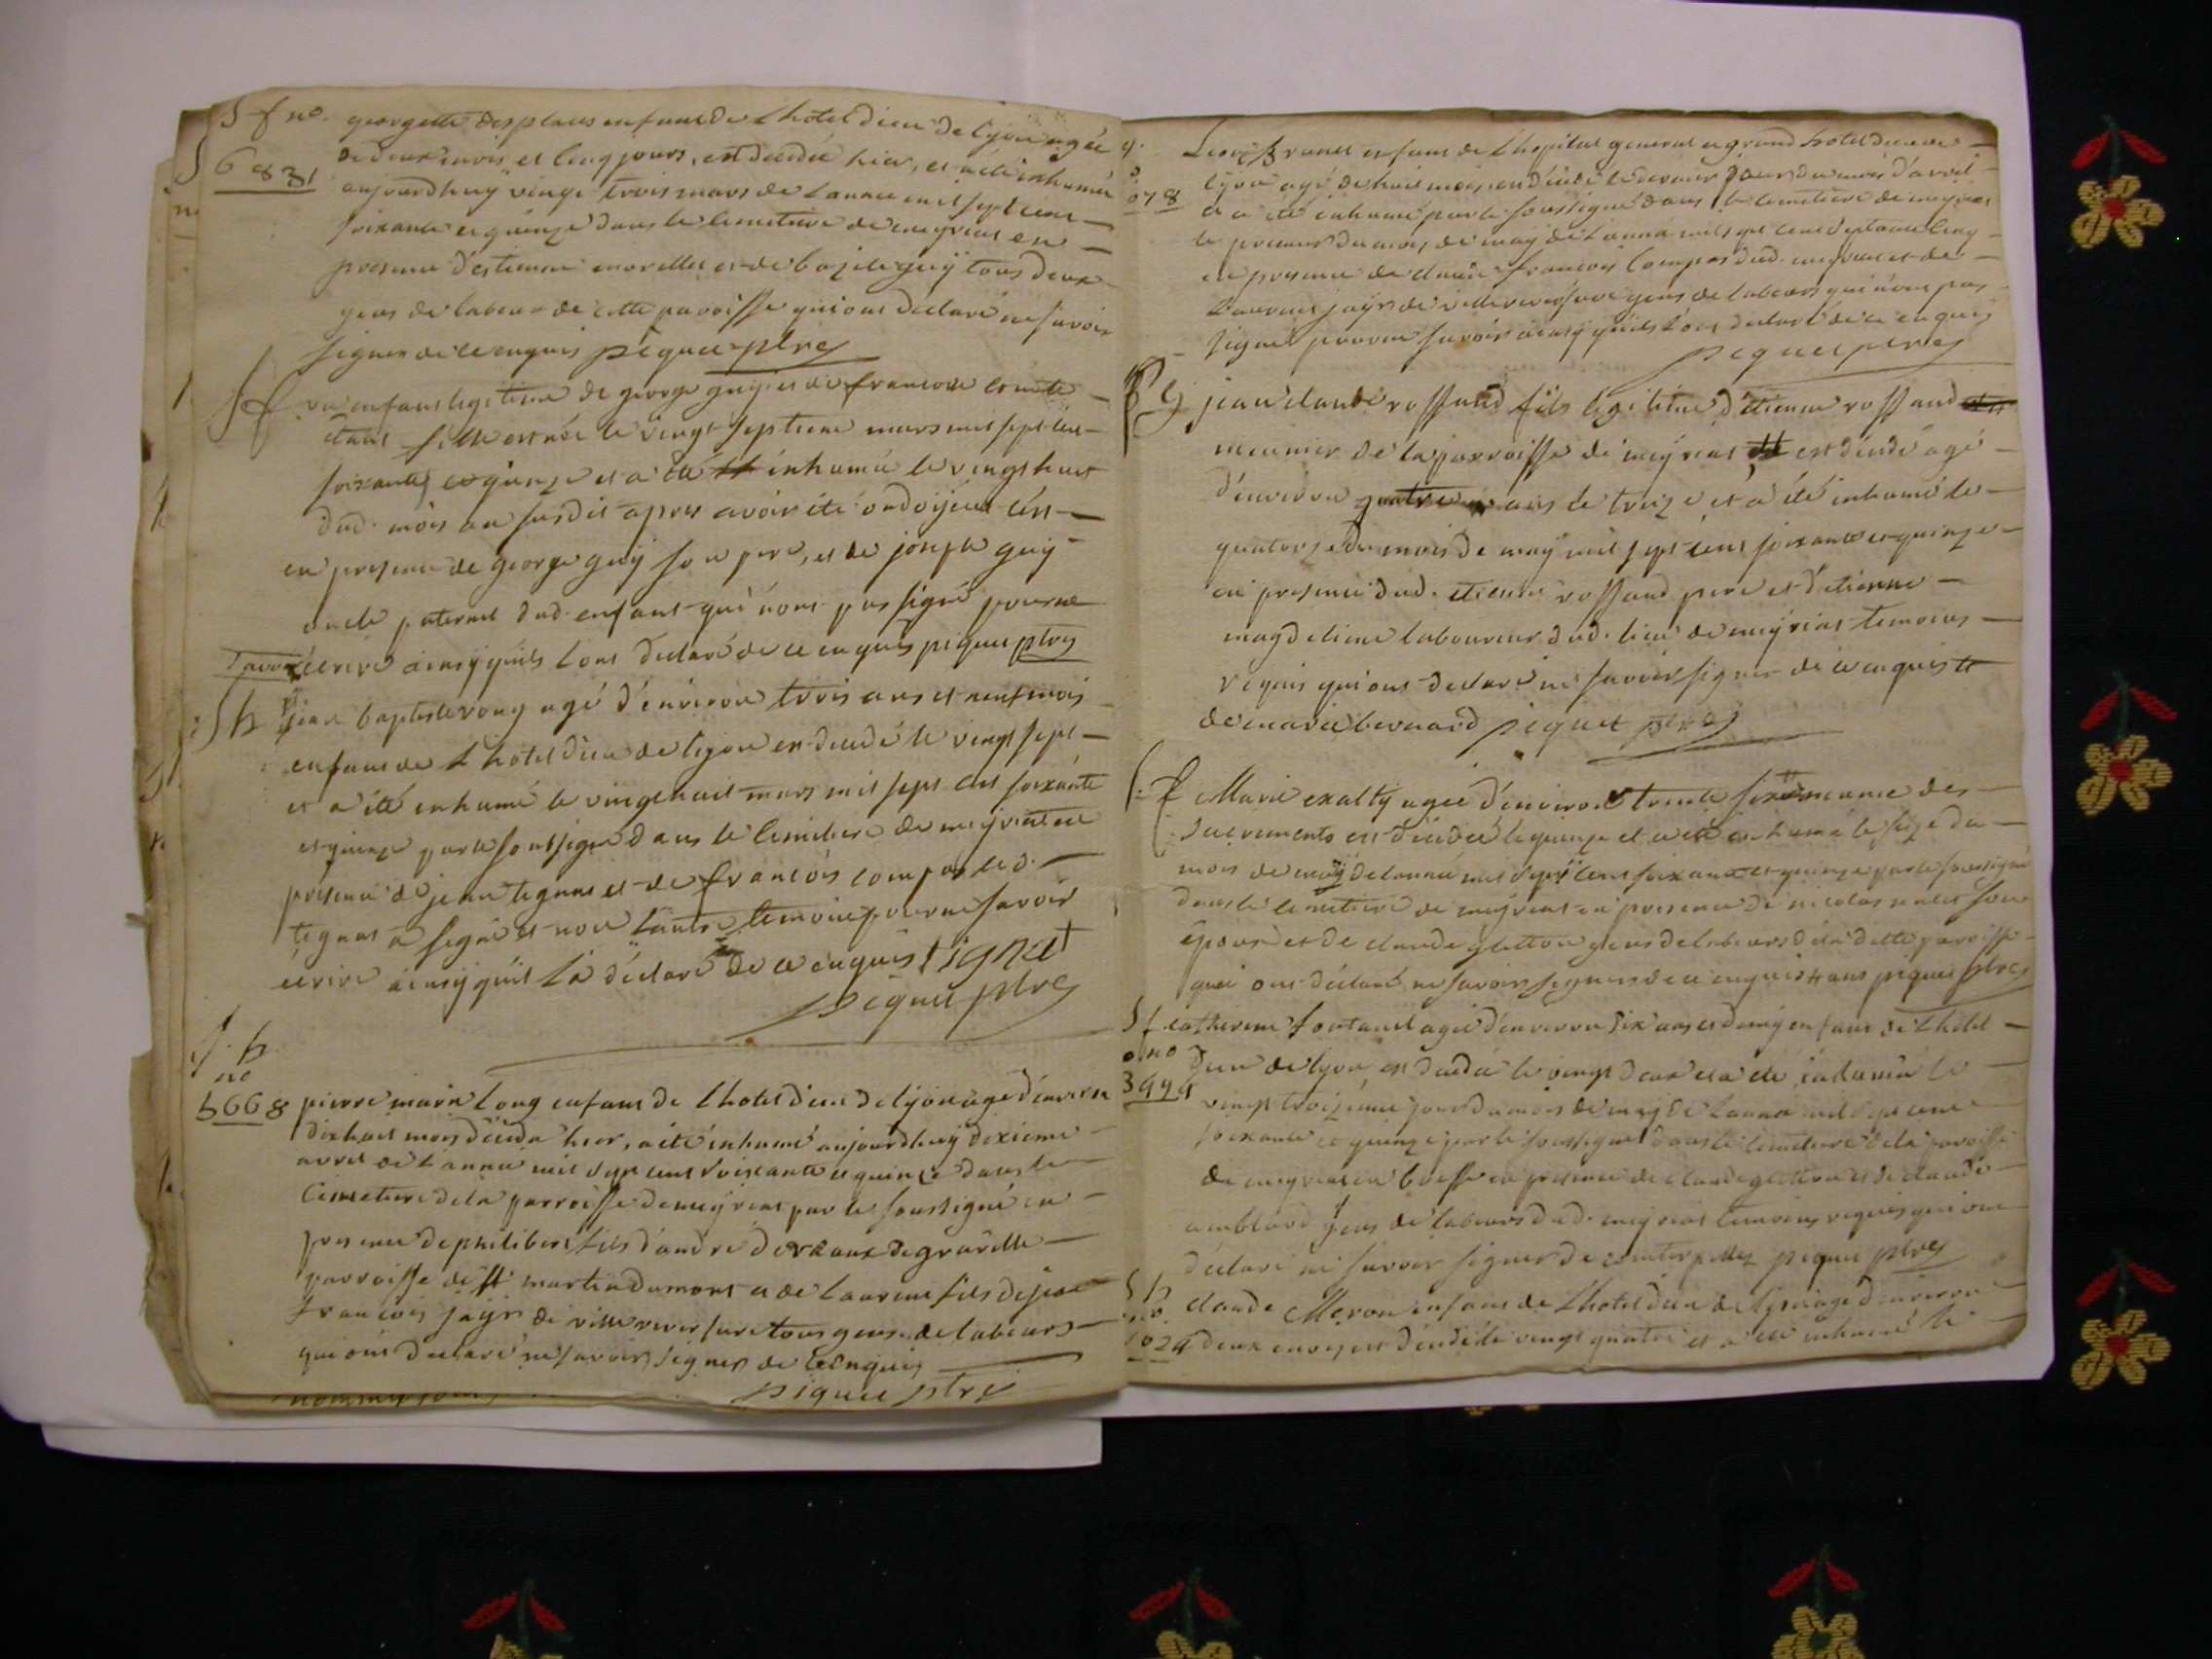 S f no. georgette desplaces enfant de L hotel dieu de lyon agée
6831 de deux mois et cinq jours, est decedée hier, et a été inhumée
aujourdhuy vingt trois mars de L année mil sept cent
soixante et quinze dans le cimetiere de meyriat en
presence d'estienne morellet et de guÿ tous deux
gens de labeur de cette paroisse qui ont declaré ne savoir
signer de ce enquis piquet ptre
S f un enfant legitime de george guÿ et de francoise comte
étant fille est née le vingt septieme mars mil sept cent
soixante et quinze et a été inhumée le vingt huit
dud. mois au susdit apres avoir été ondoÿée
en presence de george guÿ son pere, et de joseph guÿ
oncle paternel dud. enfant qui n'ont pas signé pour ne
savoir écrire ainsÿ qu'ils l'ont declaré de ce enquis piquet ptre
S h jean baptiste rong agé d'environ trois ans et neuf mois
enfant de L hotel dieu de lyon est decedé le vingt sept
et a été inhumé le vingt huit mars mil sept cent soixante
et quinze par le soussigné dans le cimetiere de meÿriat en
presence de jean tignat et de francois compas led.
tignat a signé et non l'autre temoin pour ne savoir
écrire ainsÿ qu'il l'a déclaré de ce enquis tignat
piquet ptre
S. h
no
5668 pierre marie Long enfant de L hotel dieu de lÿon agé d'environ
dix huit mois décédé hier, a été inhumé aujourdhuÿ dixieme
avril de L année mil sept cent soixante et quinze dans le
cimetiere de la parroisse de meÿriat par le soussigné en
presence de philibert fils d'andré de gravelle
parroisse de st martin du mont et de Laurent fils de jean
francois jaÿr de villereversure tous gens de labeurs
qui ont declaré ne savoir signer de ce enquis
piquet ptre
Brunet enfant de L hopital general et grand hotel dieu de
lÿon agé de huit mois est décédé le dernier jour du mois d'avril
078 et a été inhumé par le soussigné dans le cimetiere de meyriat
le premier du mois de maÿ de L année mil sept cent septante cinq
en presence de francois Compas dud. meyriat et de
Laurent jaÿr de villereversure gens de labeurs qui n'ont pas
signé pour ne savoir ainsÿ qu'ils l'ont declaré de ce enquis
piquet ptre
S G jean claude rossand fils legitime d'étienne rossand
meunier de la parroisse de meÿriat est décedé agé
d'environ quatre ans le treize, et a été inhumé le
quatorze du mois de maÿ mil sept cent soixante et quinze
en presence dud. étienne rossand pere et d'etienne
magdeleine laboureur dud. lieu de meÿriat temoins
requis qui ont declaré ne savoir signer de ce enquis et
de marie bernard piquet ptre
S. f Marie exalty agée d'environ trente six munie des
sacrements est décedée le quinze et a été inhumée le seize du
mois de maÿ de l'année mil sept cent soixante et quinze par le soussigné
dans le cimetiere de meÿriat en presence de nicolas son
époux et de claude gletton gens de labeurs de la dite paroisse
qui ont déclaré ne savoir signer de ce enquis piquet ptre
S f. catherine fontanel agée d'environ dix ans et demÿ enfant de L hotel
no dieu de lyon, est decedée le vingt deux et a été inhumée le
3494 vingt troizieme jour du mois de maÿ de L année mil sept cent
soixante et quinze par le soussigné dans le cimetiere de la paroisse
de meyriat en bresse en presence de claude gletton et de claude
amblard gens de labeurs dud. meyriat temoins requis qui ont
déclaré ne savoir signer de ce interpellez piquet ptre
S h claude Meron enfant de L hotel dieu de lÿon agé d'environ
no.
024 deux est décédé le vingt quatre et a été inhumé le